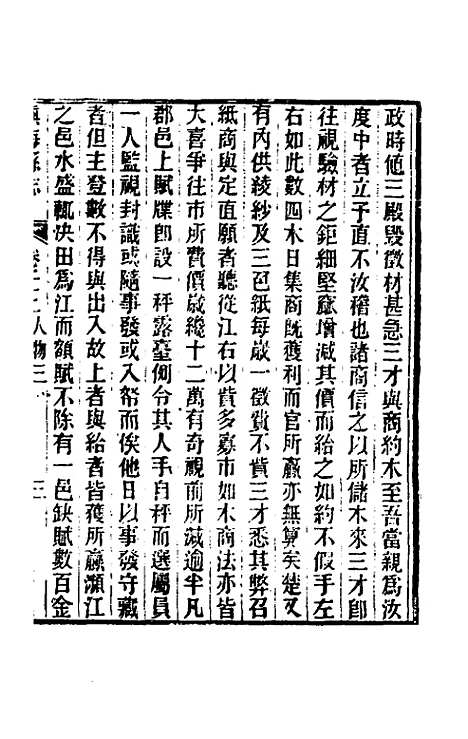 政時値三殿毀徵材甚急三才與商約木至吾當親爲汝
度中者立予直不汝稽也諸商信之以所儲木來三才卽
往視驗材之鉅細堅窳增減其價而給之如約不假手左
右如此數四木日集商旣獲利而官所贏亦無算矣楚又
有內供綾紗及三色紙每歲一徵費不貲三才悉其弊召
紙商與定直願者聽從江右以貲多募市如木商法亦皆
大喜爭往市所費價歲纔十二萬有奇視前所減逾半凡
郡邑上賦牒卽設一秤露臺側令其人手自秤而選屬員
一人監視封識或隨事發或入帑而俟他日以事發守藏
者但主登數不得與出入故上者與給者皆獲所贏瀕江
之邑水盛輒決田爲江而額賦不除有一邑缺賦數百金
鎭海縣志 卷二十二人物三